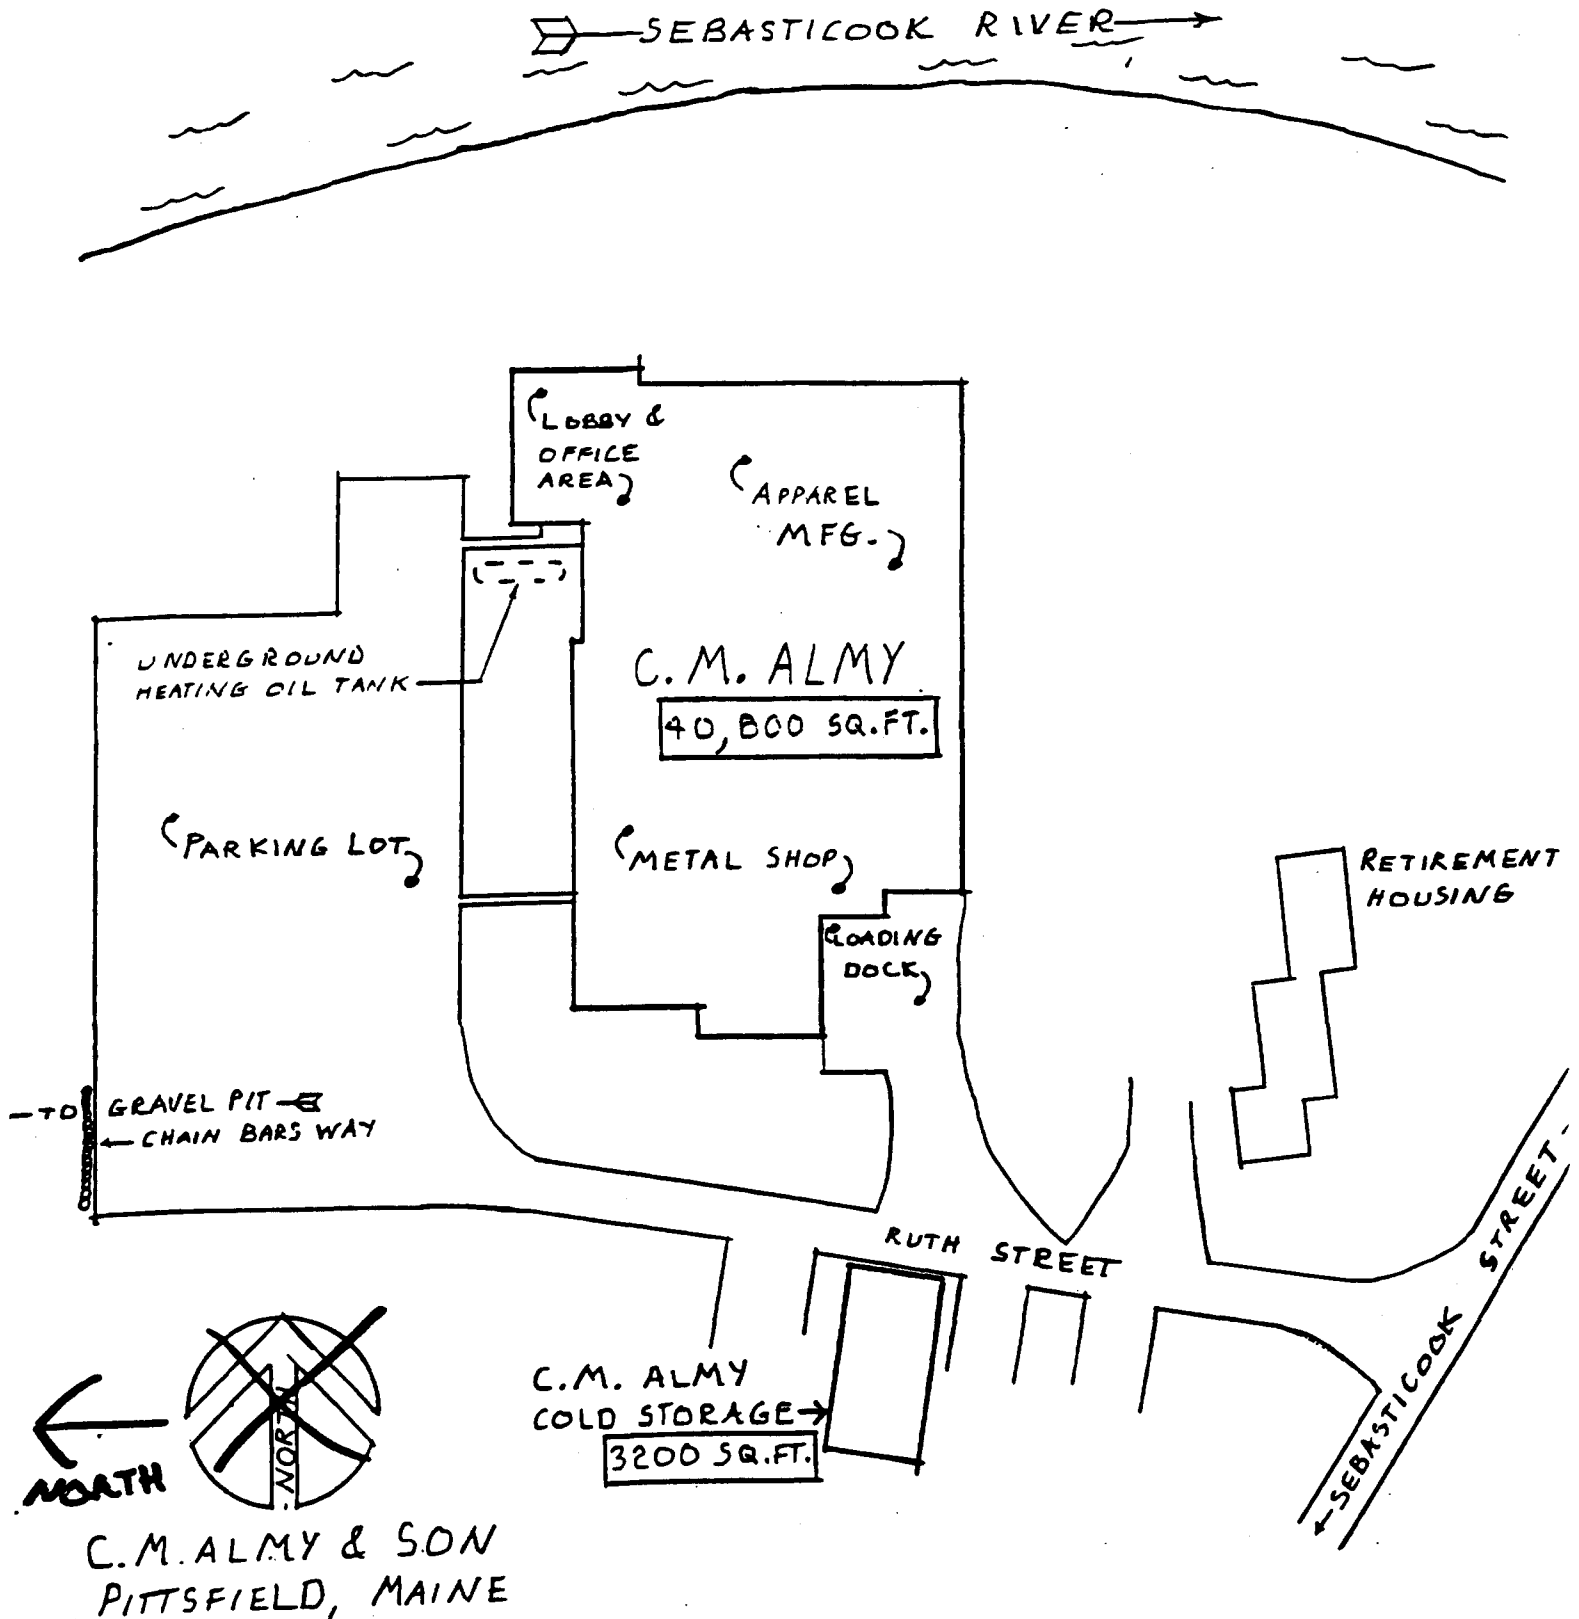 SEBASTICOOK RIVER
LOBBY &
OFFICE
AREA
APPAREL
MFG.
UNDERGROUND
HEATING OIL TANK
C. M. ALMY
40,800 SQ.FT.
PARKING LOT
METAL SHOP
RETIREMENT
HOUSING
LOADING
DOCK
-TO GRAVEL PIT
CHAIN BARS WAY
RUTH STREET
SEBASTICOOK STREET
C.M. ALMY
COLD STORAGE
3200 SQ.FT.
NORTH
NORTH
C.M. ALMY & SON
PITTSFIELD, MAINE